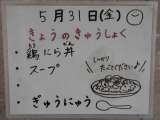 5月31日(金)
きょうのきゅうしょく
鶏にら丼
スープ
ぎゅうにゅう
しっかり
たべてくださいね♪